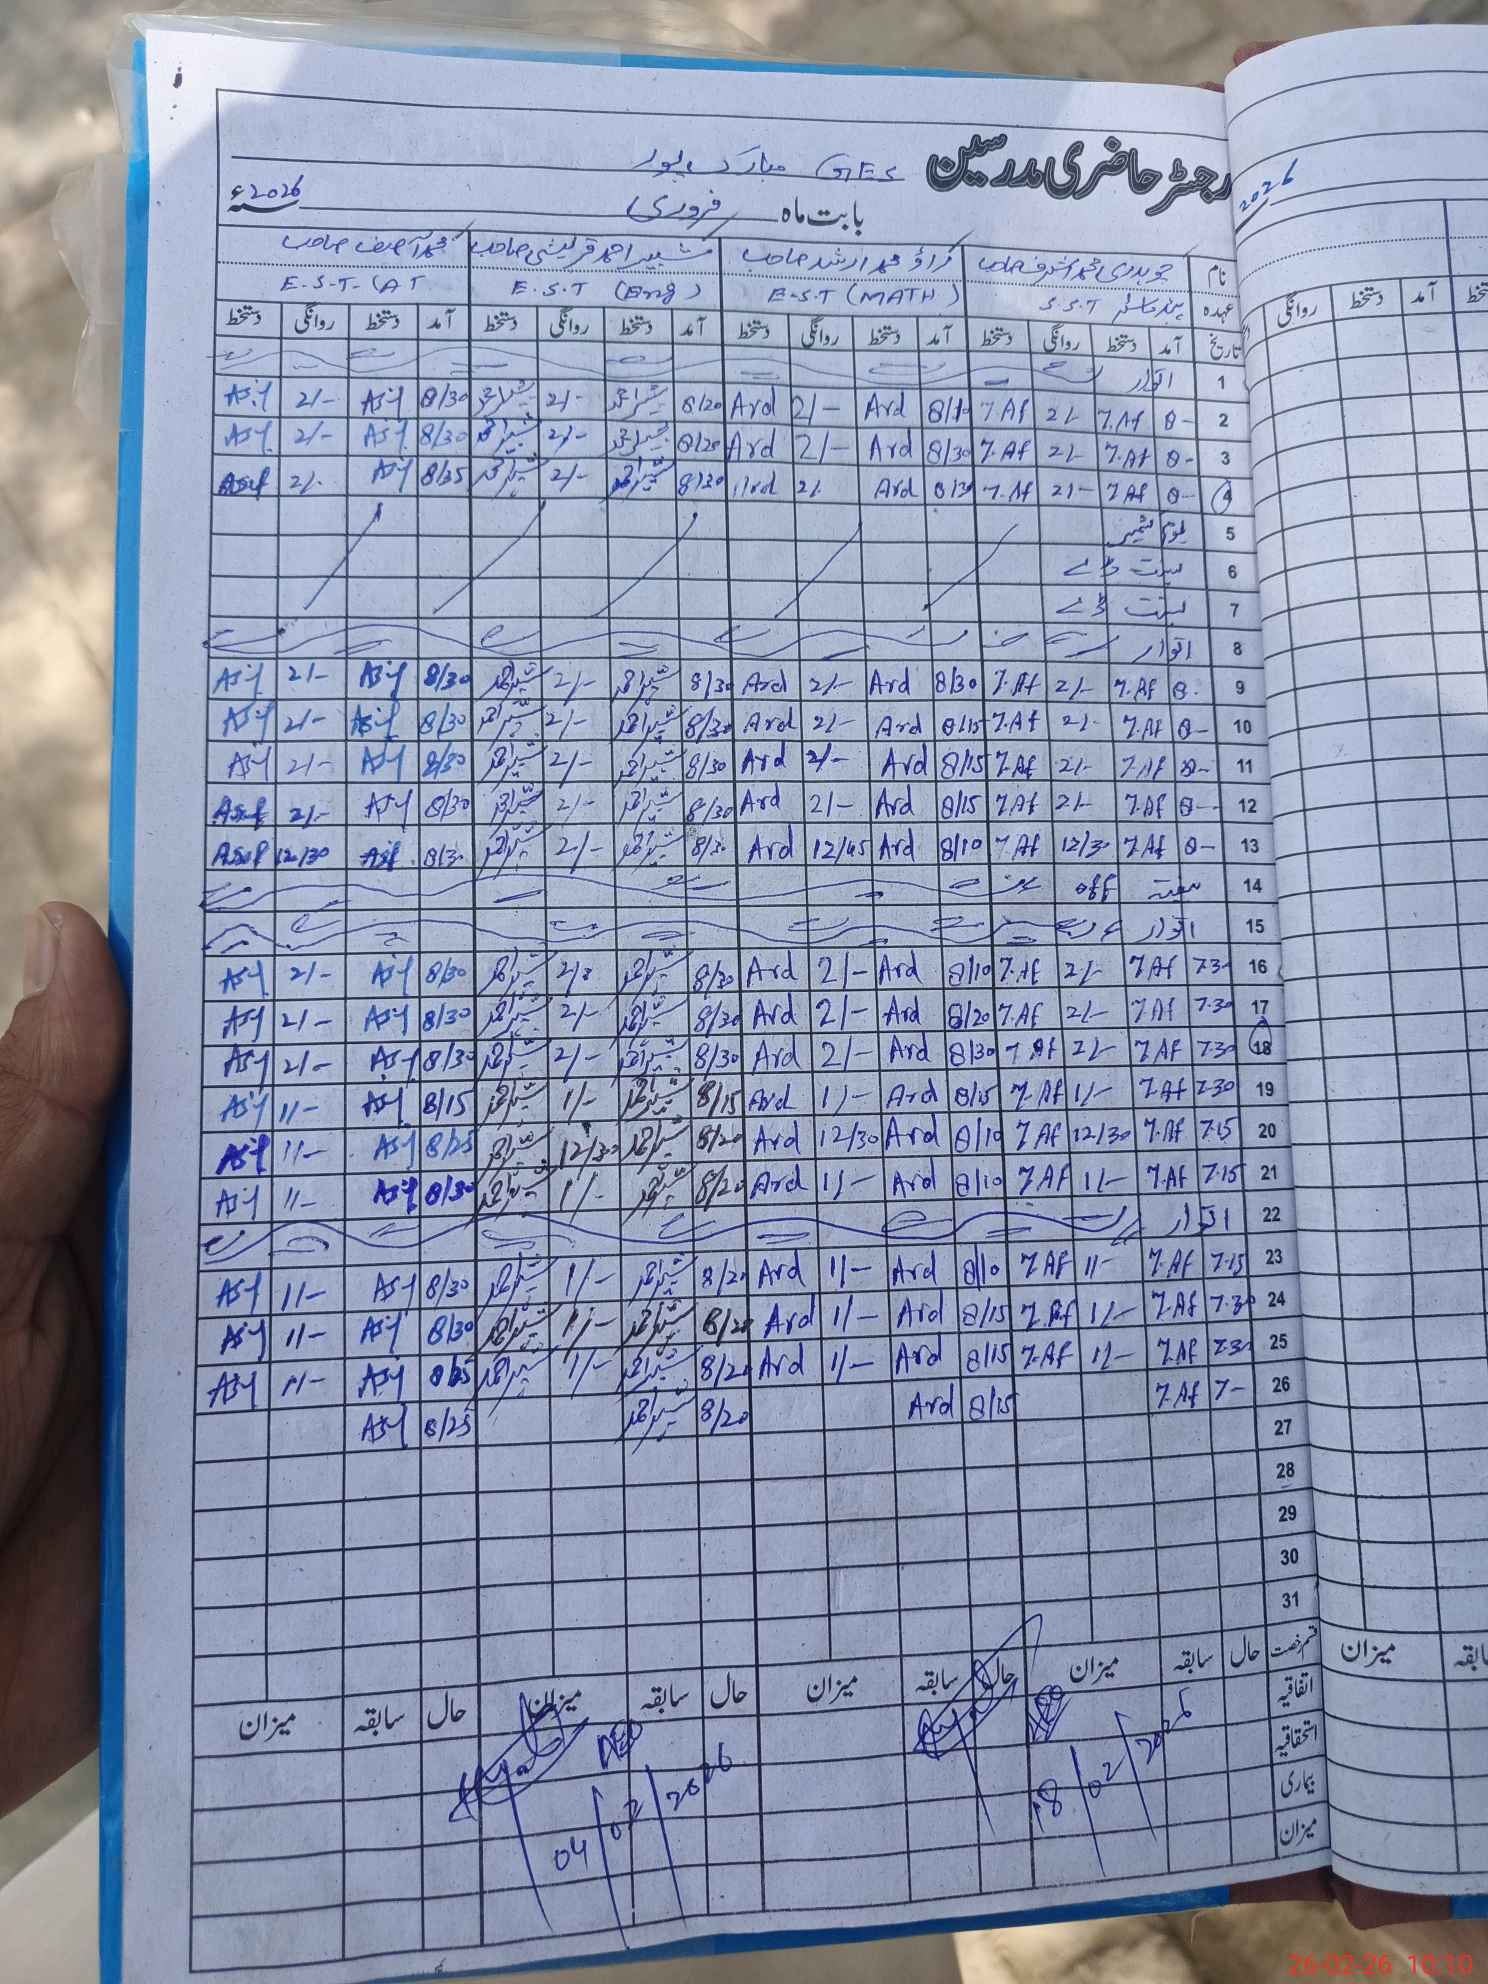 رجسٹر حاضری مدرسین GES مبارک پور
بابت ماہ فروری 2026ء
نام چوہدری محمد اشرف صاحب راؤ محمد ارشد صاحب شبیر احمد قریشی صاحب محمد آصف صاحب
عہدہ S.S.T E.S.T (MATH) E.S.T (Eng) E.S.T. (AT
تاریخ آمد دستخط روانگی دستخط آمد دستخط روانگی دستخط آمد دستخط روانگی دستخط آمد دستخط روانگی دستخط
1 اتوار
2 8- 7.Af 2/- 7.Af 8/10 Ard 2/- Ard 8/20 شبیر احمد 2/- شبیر احمد 8/30 Asif 2/- Asif
3 8- 7.Af 2/- 7.Af 8/30 Ard 2/- Ard 8/20 شبیر احمد 2/- شبیر احمد 8/30 Asif 2/- Asif
4 8- 7.Af 2/- 7.Af 8/30 Ard 2/ Ard 8/20 شبیر احمد 2/- شبیر احمد 8/35 Asif 2/- Asif
5 یوم کشمیر
6 بسنت ڈے
7 بسنت ڈے
8 اتوار
9 8- 7.Af 2/- 7.Af 8/30 Ard 2/- Ard 8/30 شبیر احمد 2/- شبیر احمد 8/30 Asif 2/- Asif
10 8- 7.Af 2/- 7.Af 8/15 Ard 2/- Ard 8/30 شبیر احمد 2/- شبیر احمد 8/30 Asif 2/- Asif
11 8- 7.Af 2/- 7.Af 8/15 Ard 2/- Ard 8/30 شبیر احمد 2/- شبیر احمد 8/30 Asif 2/- Asif
12 8- 7.Af 2/- 7.Af 8/15 Ard 2/- Ard 8/30 شبیر احمد 2/- شبیر احمد 8/30 Asif 2/- Asif
13 8- 7.Af 12/30 7.Af 8/10 Ard 12/45 Ard 8/30 شبیر احمد 2/- شبیر احمد 8/30 Asif 12/30 Asif
14 ہفتہ off
15 اتوار
16 7.30 7.Af 2/- 7.Af 8/10 Ard 2/- Ard 8/30 شبیر احمد 2/- شبیر احمد 8/30 Asif 2/- Asif
17 7.30 7.Af 2/- 7.Af 8/20 Ard 2/- Ard 8/30 شبیر احمد 2/- شبیر احمد 8/30 Asif 2/- Asif
18 7.30 7.Af 2/- 7.Af 8/30 Ard 2/- Ard 8/30 شبیر احمد 2/- شبیر احمد 8/30 Asif 2/- Asif
19 7.30 7.Af 1/- 7.Af 8/15 Ard 1/- Ard 8/15 شبیر احمد 1/- شبیر احمد 8/15 Asif 1/- Asif
20 7.15 7.Af 12/30 7.Af 8/10 Ard 12/30 Ard 8/20 شبیر احمد 12/30 شبیر احمد 8/25 Asif 1/- Asif
21 7.15 7.Af 1/- 7.Af 8/10 Ard 1/- Ard 8/20 شبیر احمد 1/- شبیر احمد 8/30 Asif 1/- Asif
22 اتوار
23 7.15 7.Af 1/- 7.Af 8/10 Ard 1/- Ard 8/20 شبیر احمد 1/- شبیر احمد 8/30 Asif 1/- Asif
24 7.30 7.Af 1/- 7.Af 8/15 Ard 1/- Ard 8/20 شبیر احمد 1/- شبیر احمد 8/30 Asif 1/- Asif
25 7.30 7.Af 1/- 7.Af 8/15 Ard 1/- Ard 8/20 شبیر احمد 1/- شبیر احمد 8/25 Asif 1/- Asif
26 7- 7.Af 8/15 Ard 8/20 شبیر احمد 8/25 Asif
27
28
29
30
31
قسم رخصت حال سابقہ میزان حال سابقہ میزان حال سابقہ میزان حال سابقہ میزان
اتفاقیہ
استحقاقیہ
بیماری
میزان
18/02/2026
04/02/2026
2026
دستخط آمد دستخط روانگی
سابقہ میزان
26-02-26 10:10